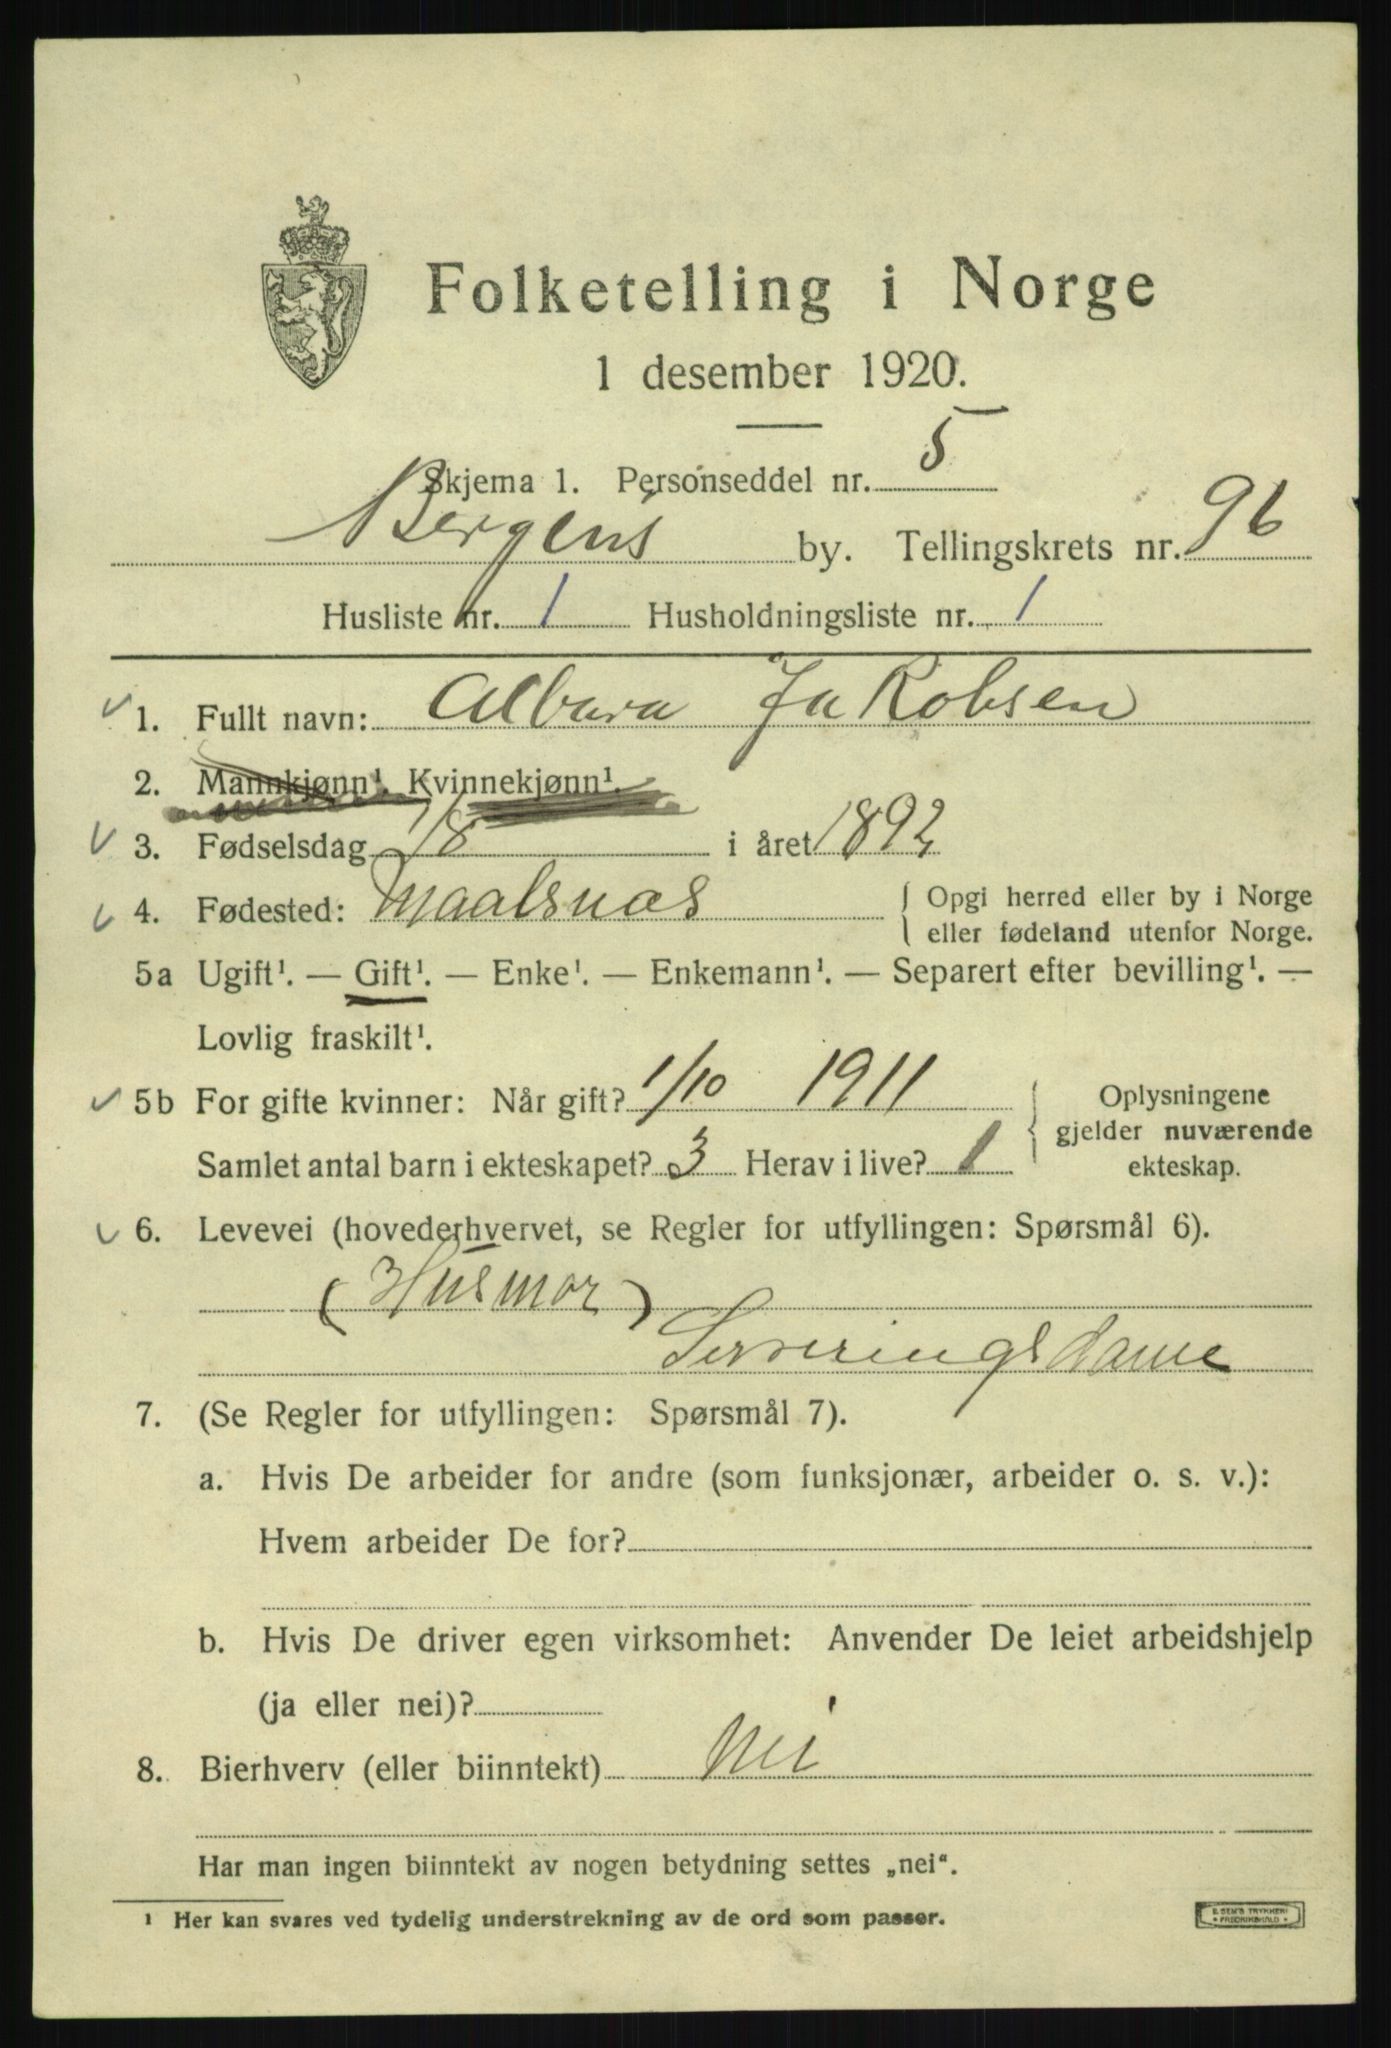 Folketelling i Norge
1 desember 1920.
Skjema 1. Personseddel nr. 5
Bergens by. Tellingskrets nr. 96
Husliste nr. 1 Husholdningsliste nr. 1
1. Fullt navn: Albara Jakobsen
2. Mannkjønn¹. Kvinnekjønn¹.
3. Fødselsdag 1/8 i året 1892
4. Fødested: Maalsnes { Opgi herred eller by i Norge
eller fødeland utenfor Norge.
5a Ugift¹. — Gift¹. — Enke¹. — Enkemann¹. — Separert efter bevilling¹. —
Lovlig fraskilt¹.
5b For gifte kvinner: Når gift? 1/10 1911 { Oplysningene
gjelder nuværende
Samlet antal barn i ekteskapet? 3 Herav i live? 1 ekteskap.
6. Levevei (hovederhvervet, se Regler for utfyllingen: Spørsmål 6).
(Husmor)
Serveringsdame
7. (Se Regler for utfyllingen: Spørsmål 7).
a. Hvis De arbeider for andre (som funksjonær, arbeider o. s. v.):
Hvem arbeider De for?
b. Hvis De driver egen virksomhet: Anvender De leiet arbeidshjelp
(ja eller nei)?
8. Bierhverv (eller biinntekt) Nei
Har man ingen biinntekt av nogen betydning settes „nei“.
¹ Her kan svares ved tydelig understrekning av de ord som passer.
E. SEM'S TRYKKERI
FREDRIKSHALD